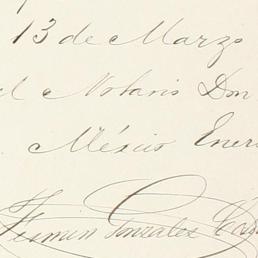 13 de Marzo
el Notario Don
México Enero
Fermin Gonzalez Cos